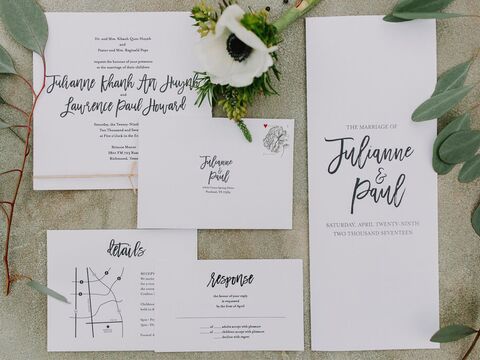 Dr. and Mrs. Khanh Quoc Huynh
and
Pastor and Mrs. Reginald Pope
request the honour of your presence
at the marriage of their children
Julianne Khanh An Huynh
and
Lawrence Paul Howard
Saturday, the Twenty-Ninth
Two Thousand and
at Five o'clock in the
Briscoe Manor
5801 FM 723 Road
Richmond, Texas
Julianne
&
Paul
Pearland, TX
THE MARRIAGE OF
Julianne
&
Paul
SATURDAY, APRIL TWENTY-NINTH
TWO THOUSAND SEVENTEEN
details
RECEP
response
the favour of your reply
is requested
by the first of April
of adults accept with pleasure
of children accept with pleasure
decline with regret